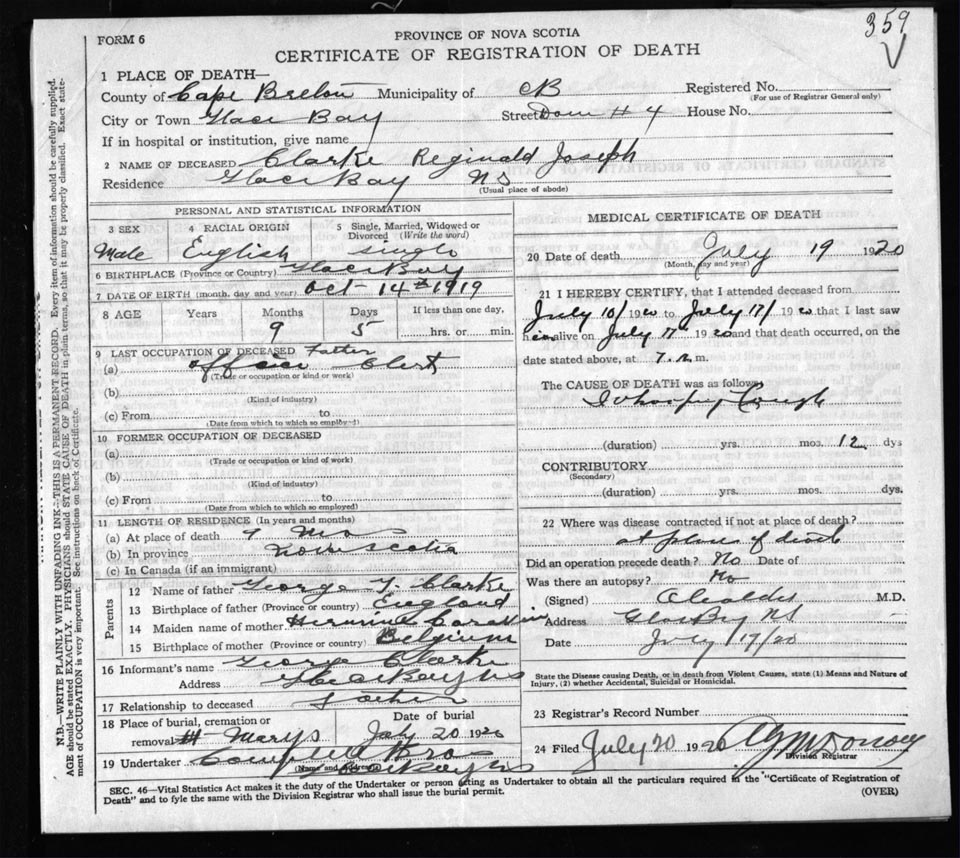 359
FORM 6
PROVINCE OF NOVA SCOTIA
CERTIFICATE OF REGISTRATION OF DEATH
1 PLACE OF DEATH—
County of Cape Breton Municipality of CB Registered No.
(For use of Registrar General only)
City or Town Glace Bay Street Dom # 4 House No.
If in hospital or institution, give name
2 NAME OF DECEASED Clarke Reginald Joseph
Residence Glace Bay NS
(Usual place of abode)
PERSONAL AND STATISTICAL INFORMATION
3 SEX 4 RACIAL ORIGIN 5 Single, Married, Widowed or Divorced (Write the word)
Male English single
6 BIRTHPLACE (Province or Country) Glace Bay
7 DATE OF BIRTH (month, day and year) Oct 14th 1919
8 AGE Years Months Days If less than one day,
9 5 hrs. or min.
9 LAST OCCUPATION OF DECEASED Father
(a) office Clerk
(Trade or occupation or kind or work)
(b)
(Kind of industry)
(c) From to
(Date from which to which so employed)
10 FORMER OCCUPATION OF DECEASED
(a)
(Trade or occupation or kind of work)
(b)
(Kind of industry)
(c) From to
(Date from which to which so employed)
11 LENGTH OF RESIDENCE (In years and months)
(a) At place of death 9 Mo
(b) In province Nova Scotia
(c) In Canada (if an immigrant)
Parents
12 Name of father George Y. Clarke
13 Birthplace of father (Province or country) England
14 Maiden name of mother
15 Birthplace of mother (Province or country) Belgium
16 Informant's name George Clarke
Address Glace Bay NS
17 Relationship to deceased Father
18 Place of burial, cremation or removal Marys Date of burial July 20 1920
19 Undertaker Bros
(Name and address) Glace Bay NS
MEDICAL CERTIFICATE OF DEATH
20 Date of death July 19 1920
(Month, day and year)
21 I HEREBY CERTIFY, that I attended deceased from
July 10/ 1920 to July 17/ 1920 that I last saw
him alive on July 17 1920 and that death occurred, on the
date stated above, at 7. m.
The CAUSE OF DEATH was as follows
Whooping Cough
(duration) yrs. mos. 12 dys
CONTRIBUTORY
(Secondary)
(duration) yrs. mos. dys.
22 Where was disease contracted if not at place of death?
at place of death
Did an operation precede death? No Date of
Was there an autopsy? No
(Signed) M.D.
Address Glace Bay NS
Date July 17/20
State the Disease causing Death, or in death from Violent Causes, state (1) Means and Nature of Injury, (2) whether Accidental, Suicidal or Homicidal.
23 Registrar's Record Number
24 Filed July 20 1920
Division Registrar
SEC. 46—Vital Statistics Act makes it the duty of the Undertaker or person acting as Undertaker to obtain all the particulars required in the "Certificate of Registration of
Death" and to fyle the same with the Division Registrar who shall issue the burial permit. (OVER)
N.B.—WRITE PLAINLY WITH UNFADING INK—THIS IS A PERMANENT RECORD. Every item of information should be carefully supplied.
AGE should be stated EXACTLY. PHYSICIANS should STATE CAUSE OF DEATH in plain terms, so that it may be properly classified. Exact statement of OCCUPATION is very important. See instructions on back of Certificate.